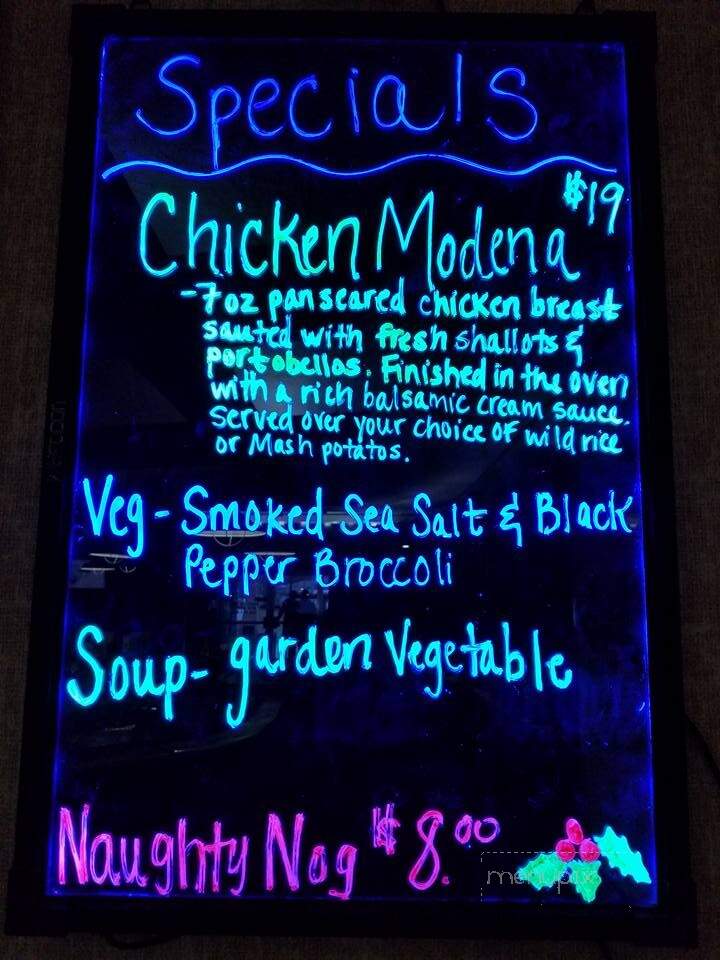 Specials
$19
Chicken Modena
-7oz pan seared chicken breast
sauted with fresh shallots &
portobellos. Finished in the oven
with a rich balsamic cream sauce.
Served over your choice of wild rice
or Mash potatos.
Veg - Smoked Sea Salt & Black
Pepper Broccoli
Soup - garden Vegetable
Naughty Nog $8.00
menupix